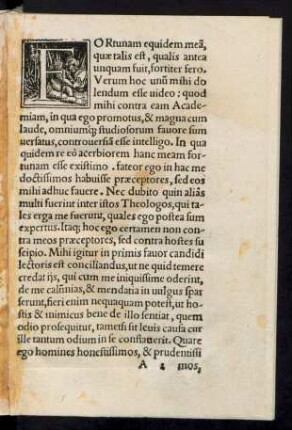 FORtunam equidem meã,
quæ talis est, qualis antea
unquam fuit, fortiter fero.
Verum hoc unũ mihi do
lendum esse uideo: quod
mihi contra eam Acade⸗
miam, in qua ego promotus, & magna cum
laude, omniumq; studiosorum fauore sum
uersatus, controuersiã esse intelligo. In qua
quidem re eò acerbiorem hanc meam for⸗
tunam esse existimo. fateor ego in hac me
doctissimos habuisse præceptores, sed eos
mihi adhuc fauere. Nec dubito quin aliâs
multi fuerint inter istos Theologos, qui ta⸗
les erga me fuerunt, quales ego postea sum
expertus. Itaq; hoc ego certamen non con
tra meos præceptores, sed contra hostes su
scipio. Mihi igitur in primis fauor candidi
lectoris est conciliandus, ut ne quid temere
credat ijs, qui cum me iniquissime oderint,
de me calũnias, & mendatia in uulgus spar
serunt, fieri enim nequaquam potest, ut ho
stis & inimicus bene de illo sentiat, quem
odio prosequitur, tametsi sit leuis causa cur
ille tantum odium in se conflauerit. Quare
ego homines honestissimos, & prudentissi
A 2 mos,